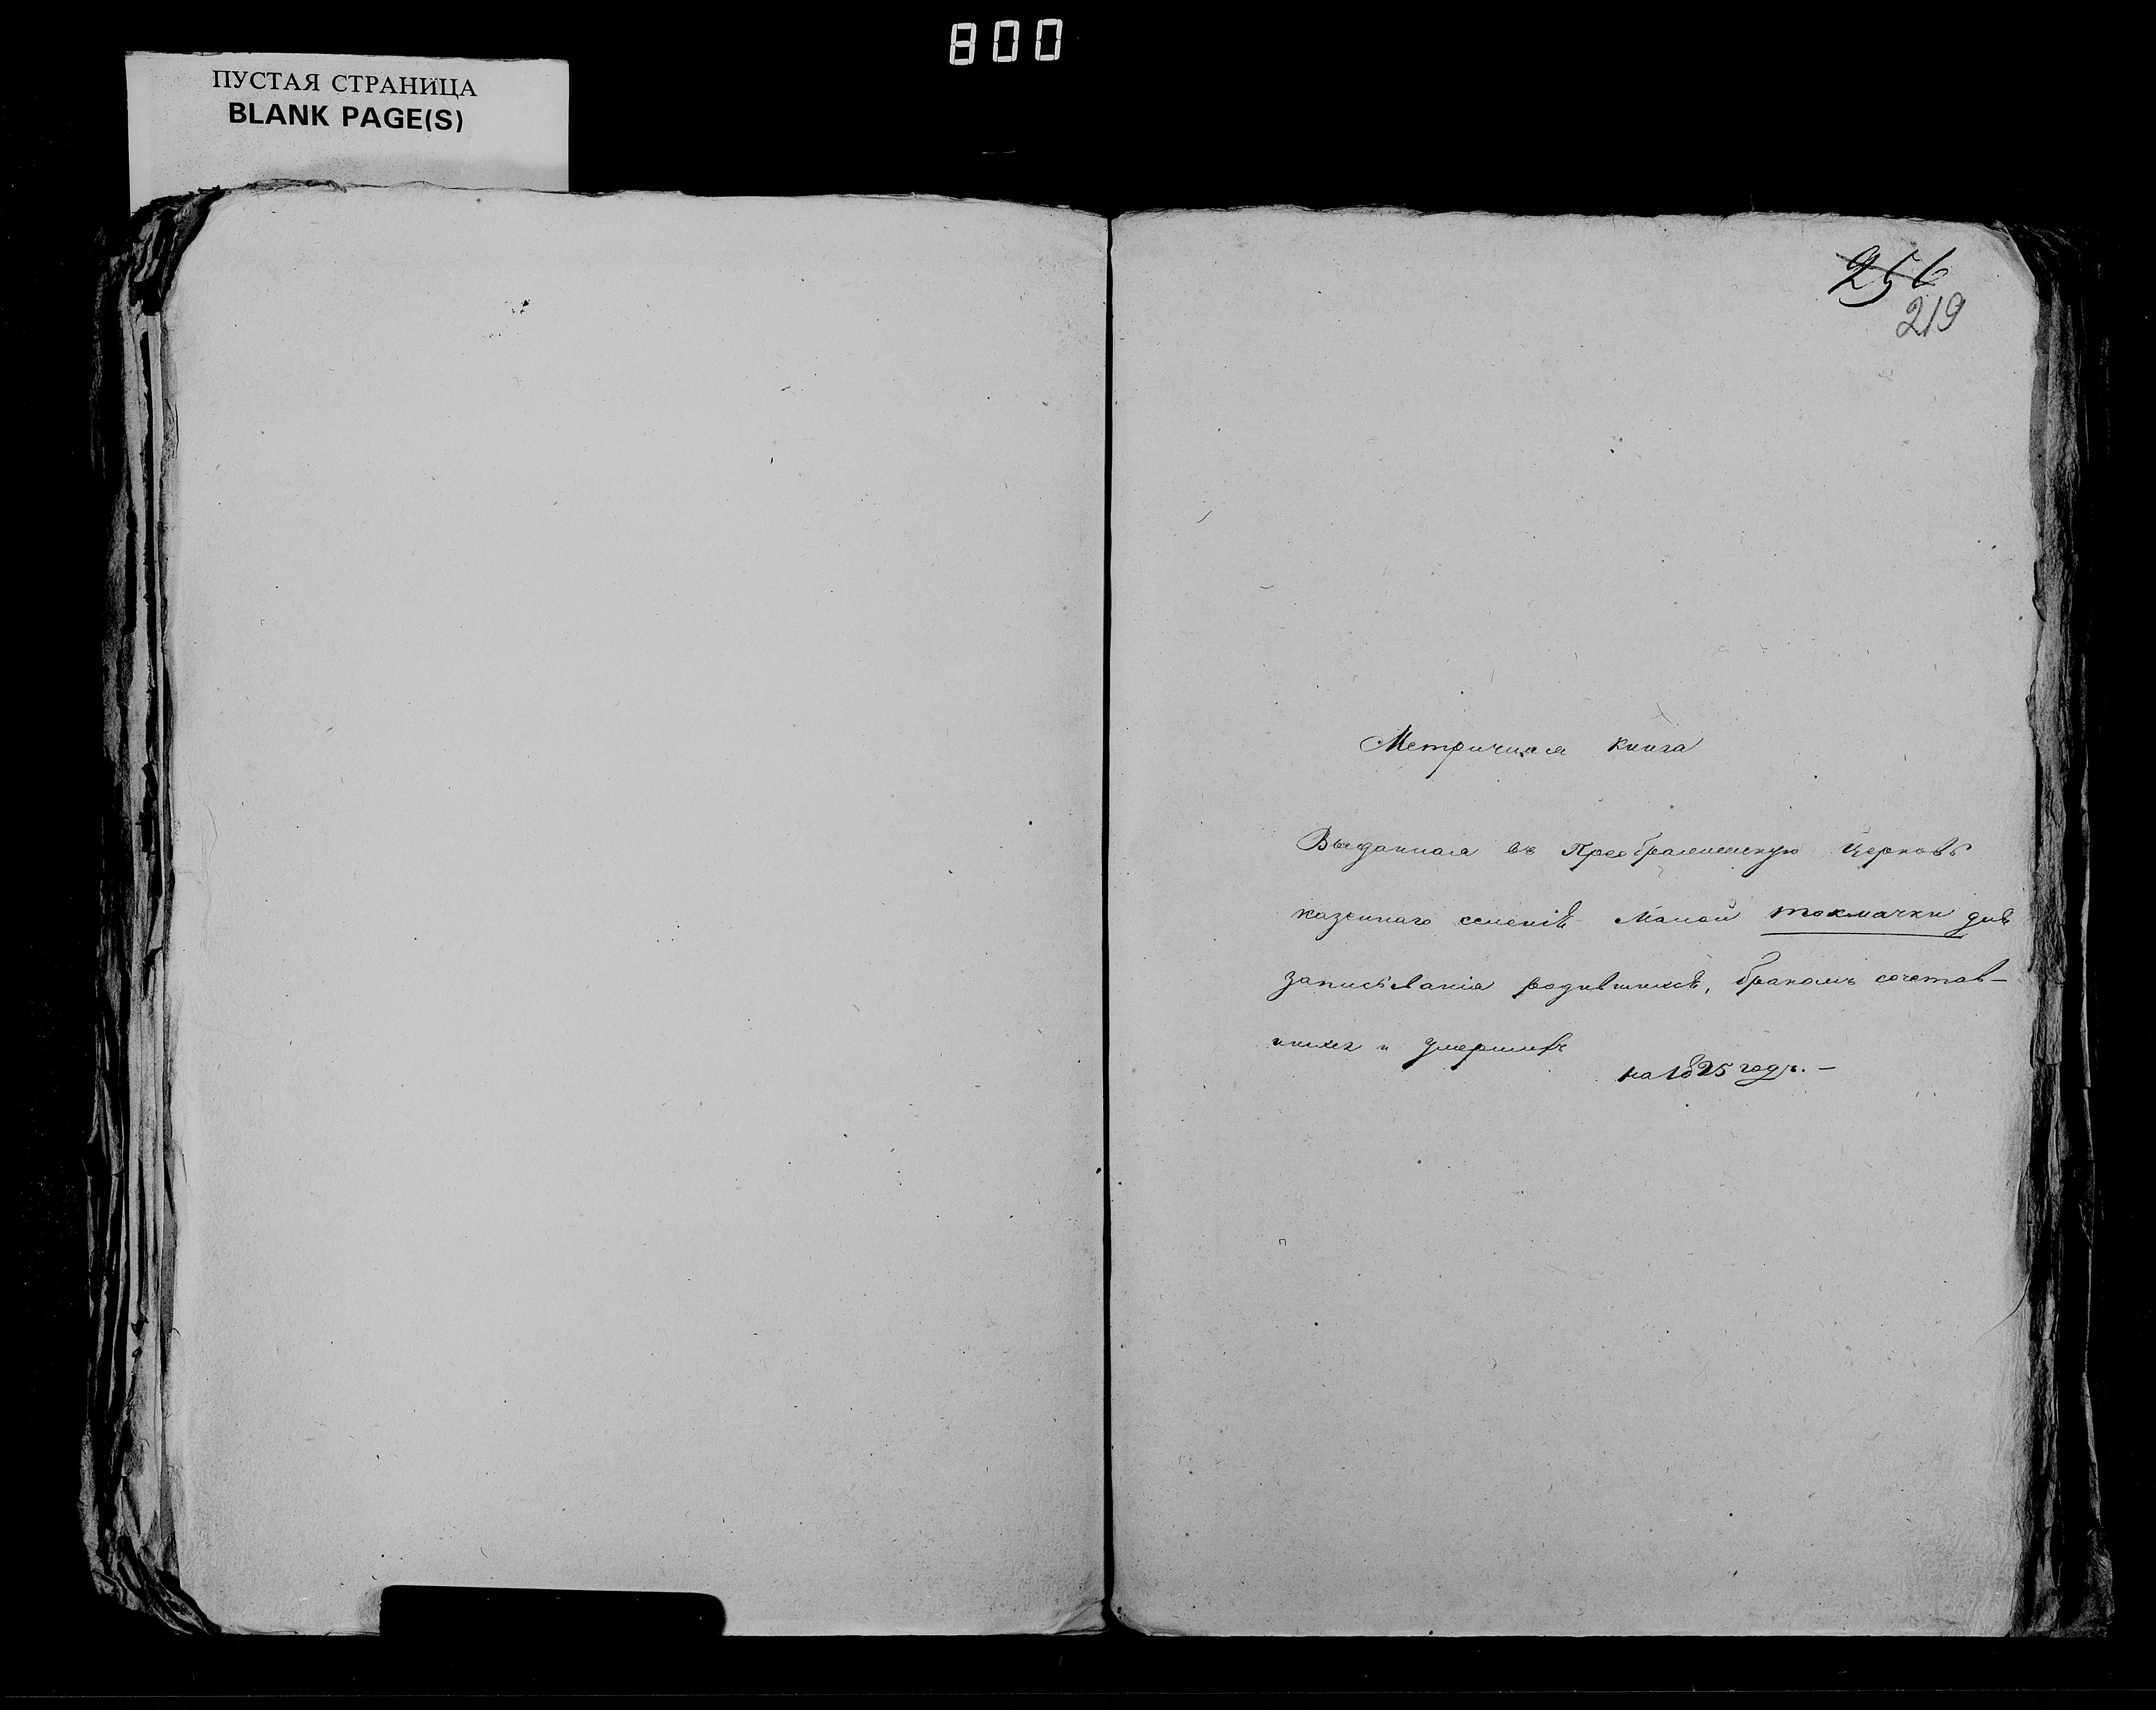 800
ПУСТАЯ СТРАНИЦА
BLANK PAGE(S)
256
219
Метричная книга
Выданная въ Преображенскую Церковь
казеннаго селенія Малой токмачки для
записыванія родившихся, бракомъ сочетав-
шихся и умершихъ
на 1825 годъ. —